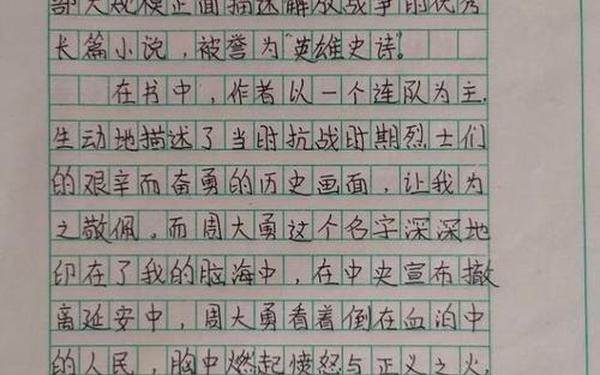 部大规模正面描述解放战争的优秀
长篇小说，被誉为"英雄史诗"。
在书中，作者以一个连队为主，
生动地描述了当时抗战时期烈士们
的艰辛而奋勇的历史画面，让我为
之敬佩，而周大勇这个名字深深地
印在了我的脑海中，在中央宣布撤
离延安中，周大勇看着倒在血泊中
的人民，胸中燃起愤怒与正义之火，